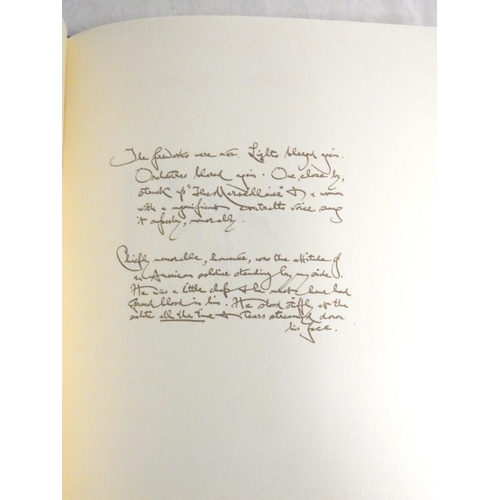 The fireworks were over. Lights blazed again.
Orchestras blared again. One, close by,
struck up "The Marseillaise" & a woman
with a magnificent contralto voice sang
it superbly, memorably.
Chiefly memorable, however, was the attitude of
an American soldier standing by my side.
He was a little chap & he must have had
French blood in his. He stood stiffly at the
salute all the time & tears streamed down
his face.